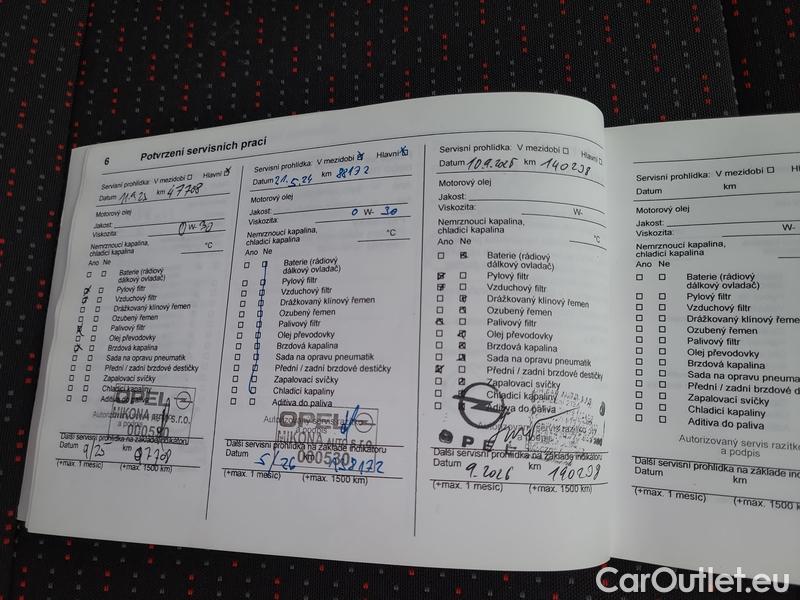 6 Potvrzení servisních prací
Servisní prohlídka: V mezidobí Hlavní
Datum 11.9.23 km 47708
Motorový olej
Jakost:
Viskozita: 0 W- 30
Nemrznoucí kapalina,
chladicí kapalina °C
Ano Ne
Baterie (rádiový
dálkový ovladač)
Pylový filtr
Vzduchový filtr
Drážkovaný klínový řemen
Ozubený řemen
Palivový filtr
Olej převodovky
Brzdová kapalina
Sada na opravu pneumatik
Přední / zadní brzdové destičky
Zapalovací svíčky
Chladicí kapaliny
Aditiva do paliva
OPEL
NIKONA AUTO s.r.o.
000530
Další servisní prohlídka na základě indikátoru
Datum km
(+max. 1 měsíc) (+max. 1500 km)
Servisní prohlídka: V mezidobí Hlavní
Datum 21.5.24 km 88172
Motorový olej
Jakost:
Viskozita: 0 W- 30
Nemrznoucí kapalina,
chladicí kapalina °C
Ano Ne
Baterie (rádiový
dálkový ovladač)
Pylový filtr
Vzduchový filtr
Drážkovaný klínový řemen
Ozubený řemen
Palivový filtr
Olej převodovky
Brzdová kapalina
Sada na opravu pneumatik
Přední / zadní brzdové destičky
Zapalovací svíčky
Chladicí kapaliny
Aditiva do paliva
Autorizovaný servis razítko
a podpis
OPEL
NIKONA AUTO s.r.o.
000530
Další servisní prohlídka na základě indikátoru
Datum 5/26 km
(+max. 1 měsíc) (+max. 1500 km)
Servisní prohlídka: V mezidobí Hlavní
Datum 10.9.2025 km 140298
Motorový olej
Jakost:
Viskozita: W-
Nemrznoucí kapalina,
chladicí kapalina °C
Ano Ne
Baterie (rádiový
dálkový ovladač)
Pylový filtr
Vzduchový filtr
Drážkovaný klínový řemen
Ozubený řemen
Palivový filtr
Olej převodovky
Brzdová kapalina
Sada na opravu pneumatik
Přední / zadní brzdové destičky
Zapalovací svíčky
Chladicí kapaliny
Aditiva do paliva
OPEL
Další servisní prohlídka na základě indikátoru
Datum 9.2026 km 140298
(+max. 1 měsíc) (+max. 1500 km)
Servisní prohlídka: V mezidobí Hlavní
Datum km
Motorový olej
Jakost:
Viskozita: W-
Nemrznoucí kapalina,
chladicí kapalina
Ano Ne
Baterie (rádiový
dálkový ovladač)
Pylový filtr
Vzduchový filtr
Drážkovaný klínový řemen
Ozubený řemen
Palivový filtr
Olej převodovky
Brzdová kapalina
Sada na opravu pneuma
Přední / zadní brzdové
Zapalovací svíčky
Chladicí kapaliny
Aditiva do paliva
Autorizovaný servis razítk
a podpis
Další servisní prohlídka na základě ind
Datum km
(+max. 1 měsíc) (+max. 1500 k
CarOutlet.eu